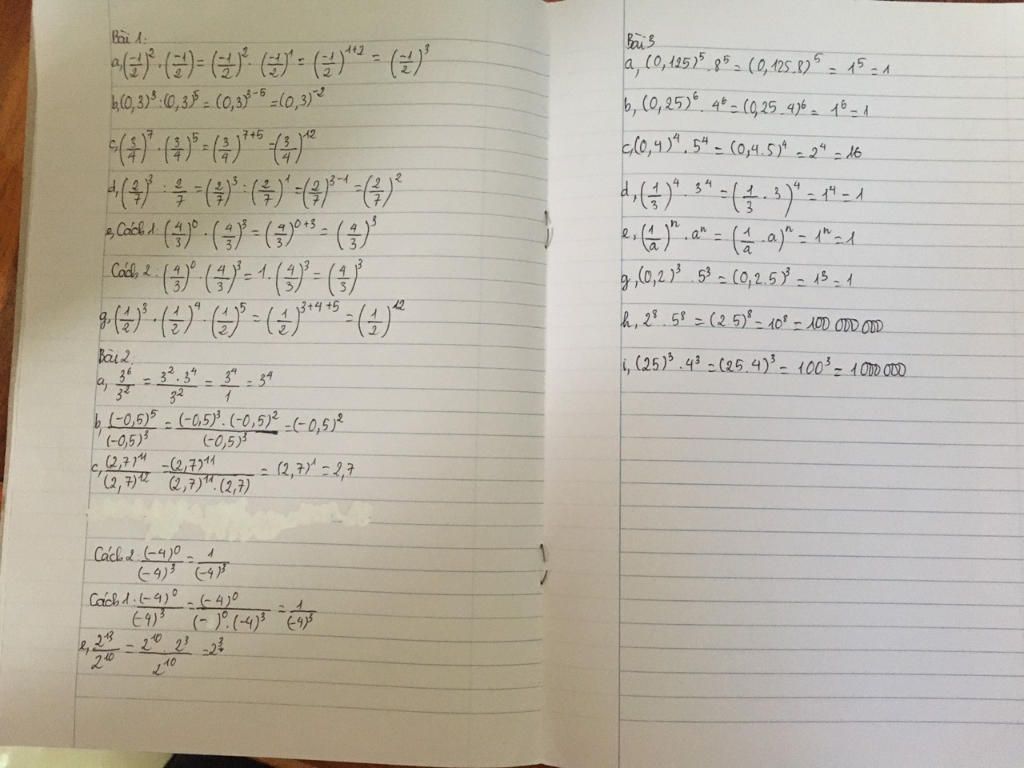 Bài 1:
a, (-1/2)² . (-1/2) = (-1/2)² . (-1/2)¹ = (-1/2)¹⁺² = (-1/2)³
b, (0,3)³ : (0,3)⁵ = (0,3)³⁻⁵ = (0,3)⁻²
c, (3/4)⁷ . (3/4)⁵ = (3/4)⁷⁺⁵ = (3/4)¹²
d, (2/7)³ : 2/7 = (2/7)³ : (2/7)¹ = (2/7)³⁻¹ = (2/7)²
e, Cách 1: (4/3)⁰ . (4/3)³ = (4/3)⁰⁺³ = (4/3)³
Cách 2: (4/3)⁰ . (4/3)³ = 1 . (4/3)³ = (4/3)³
g, (1/2)³ . (1/2)⁴ . (1/2)⁵ = (1/2)³⁺⁴⁺⁵ = (1/2)¹²
Bài 2
a, 3⁶/3² = 3² . 3⁴/3² = 3⁴/1 = 3⁴
b, (-0,5)⁵/(-0,5)³ = (-0,5)³ . (-0,5)²/(-0,5)³ = (-0,5)²
c, (2,7)¹¹/(2,7)¹² = (2,7)¹¹/(2,7)¹¹ . (2,7) = (2,7)¹ = 2,7
Cách 2: (-4)⁰/(-4)³ = 1/(-4)³
Cách 1: (-4)⁰/(-4)³ = (-4)⁰/(- )⁰ . (-4)³ = 1/(-4)³
e, 2¹³/2¹⁰ = 2¹⁰ . 2³/2¹⁰ = 2³
Bài 3
a, (0,125)⁵ . 8⁵ = (0,125.8)⁵ = 1⁵ = 1
b, (0,25)⁶ . 4⁶ = (0,25.4)⁶ = 1⁶ = 1
c, (0,4)⁴ . 5⁴ = (0,4.5)⁴ = 2⁴ = 16
d, (1/3)⁴ . 3⁴ = (1/3 . 3)⁴ = 1⁴ = 1
e, (1/a)ⁿ . aⁿ = (1/a . a)ⁿ = 1ⁿ = 1
g, (0,2)³ . 5³ = (0,2.5)³ = 1³ = 1
h, 2⁸ . 5⁸ = (2.5)⁸ = 10⁸ = 100 000 000
i, (25)³ . 4³ = (25.4)³ = 100³ = 1000 000